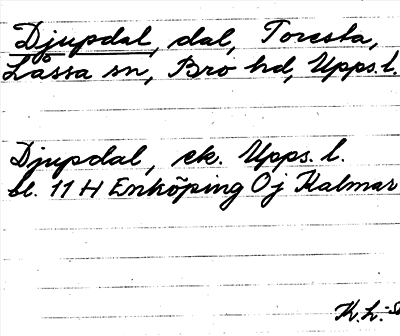 Djupdal, dal, Toresta,
Låssa sn, Bro hd, Upps. l.
Djupdal, ek. Upps. l.
bl. 11 H Enköping Oj Kalmar